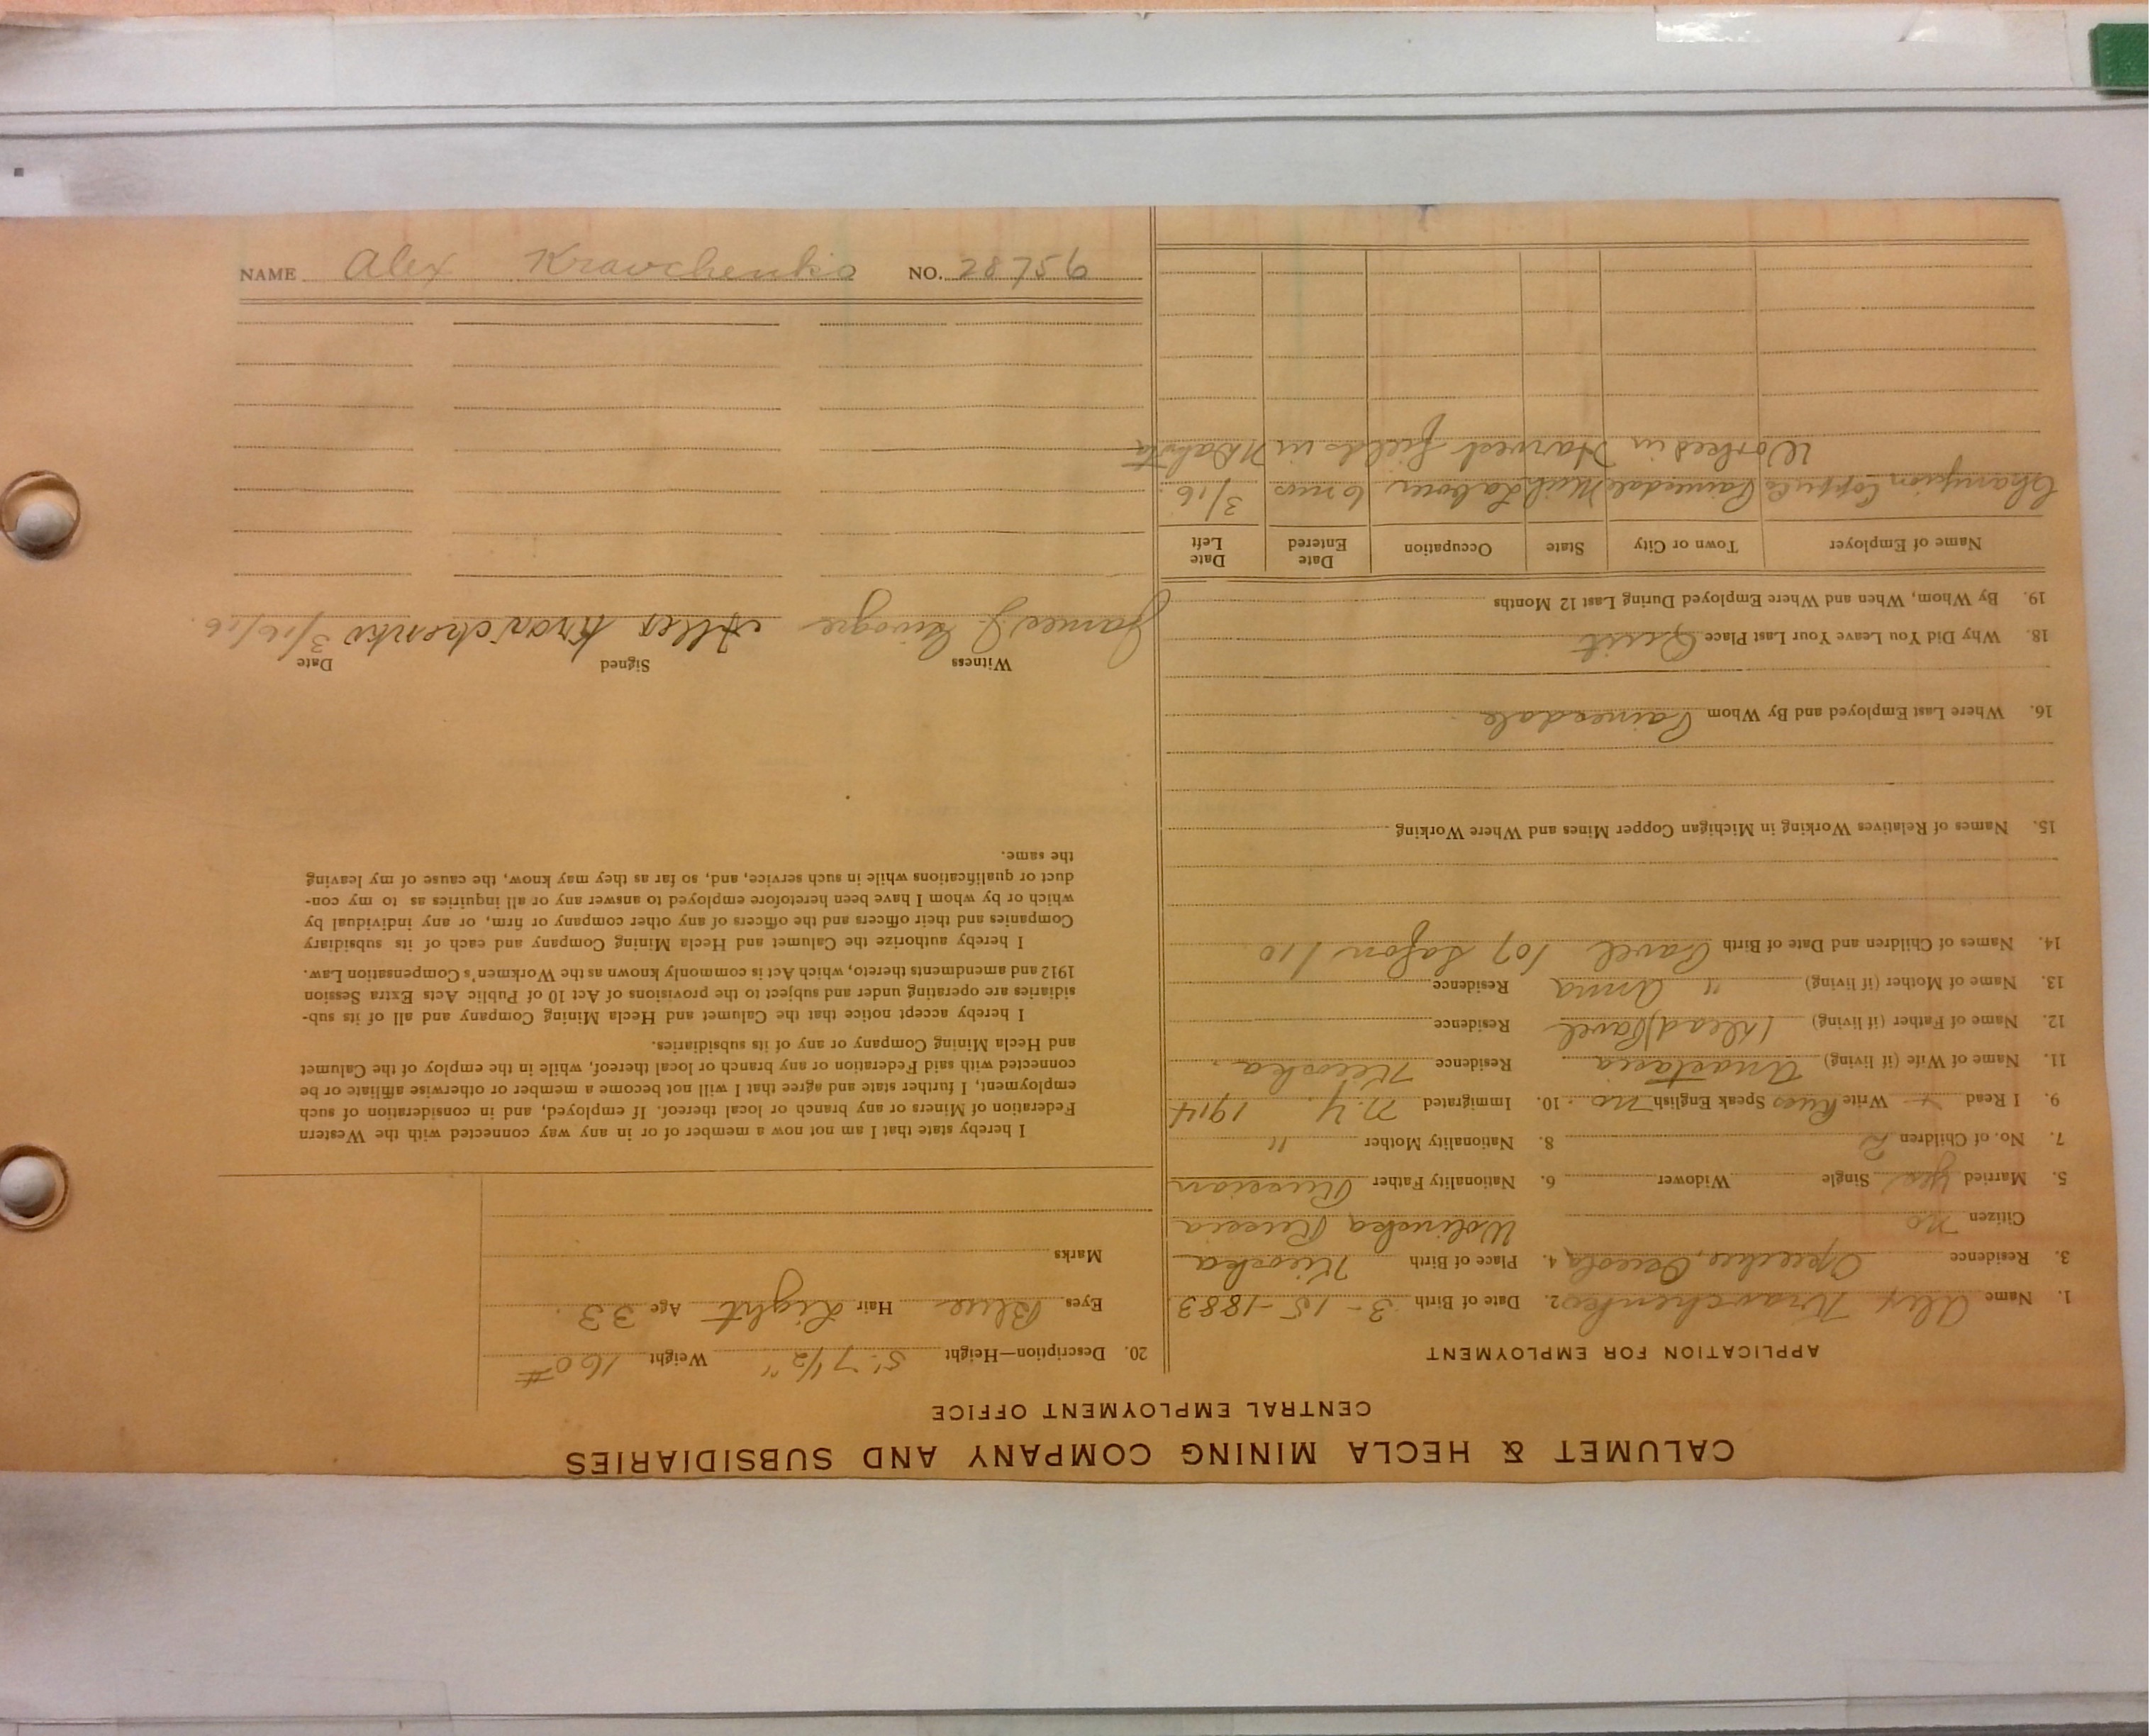 CALUMET & HECLA MINING COMPANY AND SUBSIDIARIES
CENTRAL EMPLOYMENT OFFICE
APPLICATION FOR EMPLOYMENT
1. Name Alex Kravchenko 2. Date of Birth 3-15-1883
3. Residence Opeechee, Osceola 4. Place of Birth Kieoska
Citizen no Wolinska Russia
5. Married yes Single Widower 6. Nationality Father Russian
7. No. of Children 2 8. Nationality Mother "
9. I Read + Write Russ Speak English no 10. Immigrated N.Y. 1914
11. Name of Wife (if living) Anastasia Residence Kieoska
12. Name of Father (if living) (dead) Pavel Residence
13. Name of Mother (if living) " Anna Residence
14. Names of Children and Date of Birth Pavel 107 Safon 110
15. Names of Relatives Working in Michigan Copper Mines and Where Working
16. Where Last Employed and By Whom Painesdale
18. Why Did You Leave Your Last Place Quit
19. By Whom, When and Where Employed During Last 12 Months
Name of Employer Town or City State Occupation Date Entered Date Left
Champion Copper Co Painesdale Mich Labour 6 mos 3/16
Worked in Harvest fields in N Dakota
20. Description—Height 5' 7 1/2" Weight 160#
Eyes Blue Hair Light Age 33
Marks
I hereby state that I am not now a member of or in any way connected with the Western
Federation of Miners or any branch or local thereof. If employed, and in consideration of such
employment, I further state and agree that I will not become a member or otherwise affiliate or be
connected with said Federation or any branch or local thereof, while in the employ of the Calumet
and Hecla Mining Company or any of its subsidiaries.
I hereby accept notice that the Calumet and Hecla Mining Company and all of its sub-
sidiaries are operating under and subject to the provisions of Act 10 of Public Acts Extra Session
1912 and amendments thereto, which Act is commonly known as the Workmen's Compensation Law.
I hereby authorize the Calumet and Hecla Mining Company and each of its subsidiary
Companies and their officers and the officers of any other company or firm, or any individual by
which or by whom I have been heretofore employed to answer any or all inquiries as to my con-
duct or qualifications while in such service, and, so far as they may know, the cause of my leaving
the same.
Witness Signed Date
James J. Kravchenko 3/16/16
NAME Alex Kravchenko NO. 28756